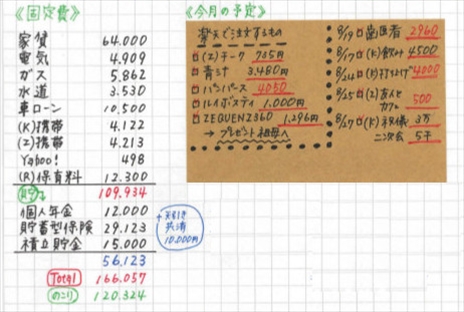 《固定費》
家賃 64.000
電気 4,909
ガス 5,862
水道 3.530
車ローン 10,500
(K)携帯 4,122
(I)携帯 4,213
Yahoo! 498
(R)保育料 12.300
109.934
個人年金 12.000
貯蓄型保険 29.123
積立貯金 15.000
56.123
Total 166.057
のこり 120.324
↑天引き
共済
10.000円
《今月の予定》
楽天で注文するもの
(I)チーク 735円
青汁 3.480円
パンパース 4050
ルイボスティ 1,000円
ZEQUENZ360 1,296円
→プレゼント祖母へ
8/19 歯医者 2960
8/17 (K)飲み 4500
4000
8/25 (I)友人と
カフェ 500
8/27 (K)祝儀 3万
二次会 5千